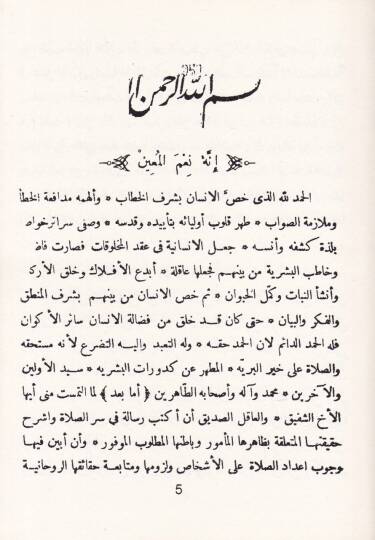 بسم الله الرحمن ا
إنَّهُ نِعْمَ المُعِين
الحمد لله الذى خصَّ الانسان بشرف الخطاب * وألهمه مدافعة الخطأ
وملازمة الصواب * طهر قلوب أوليائه بتأييده وقدسه * وصفى سرائر خواصه
بلذة كشفه وأنسه * جعل الانسانية في عقد المخلوقات فصارت
وخاطب البشرية من بينهم فجعلها عاقلة * أبدع الأفلاك وخلق الأرك
وأنشأ النبات وكمّل الحيوان * ثم خص الانسان من بينهم بشرف المنطق
والفكر والبيان * حتى كان قد خلق من فضالة الانسان سائر الأكوان
فله الحمد الدائم لان الحمد حقه * وله التعبد واليه التضرع لأنه مستحقه
والصلاة على خير البريّه * المطهر عن كدورات البشريه * سيد الأولين
والآخرين * محمد وآله وأصحابه الطاهرين ﴿ أما بعد ﴾ لما التمست منى أيها
الأخ الشفيق * والعاقل الصديق أن أكتب رسالة في سر الصلاة واشرح
حقيقتها المتعلقة بظاهرها المأمور وباطنها المطلوب الموفور * وأن أبين فيها
وجوب اعداد الصلاة على الأشخاص ولزومها ومتابعة حقائقها الروحانية
5